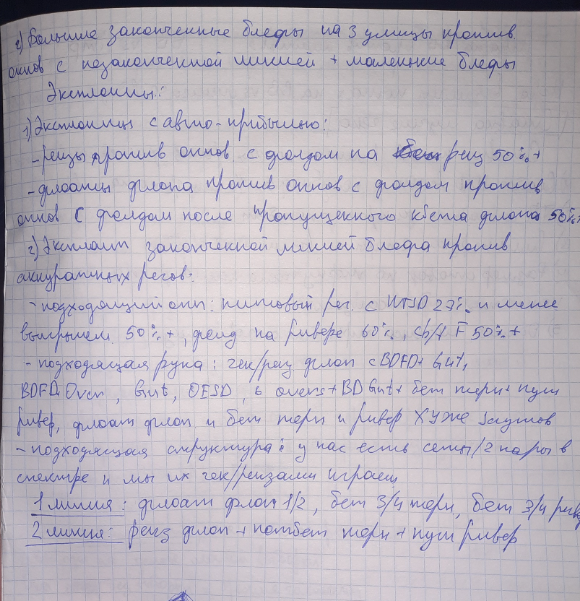 2) Большие законченные блефы на 3 улицы против
оппов с незаконченной линией + маленькие блефы
Эксплоиты:
1) Эксплоиты с авто-прибылью:
- рейзы против оппов с фолдом на рейз 50%+
- флоаты флопа против оппов с фолдом против
оппов с фолдом после пропущенного кбета флопа 50%+
2) Эксплоит законченной линией блефа против
аккуратных регов:
- подходящий опп: нитовый рег с WTSD 27% и менее
выигрышем 50%+, фолд на ривере 60%, cb/f F 50%+
- подходящая рука: чек/рейз флоп с BDFD+ Gut,
BDFD Over, Gut, OESD, 2 overs+BD Gut+ бет терн+ пуш
ривер, флоат флоп и бет терн и ривер ХУЖЕ гатшотов
- подходящая структура: у нас есть сеты/2 пары в
спектре и мы их чек/рейзами играем
1 линия: флоат флоп 1/2, бет 3/4 терн, бет 3/4 ривер
2 линия: рейз флоп + потбет терн + пуш ривер